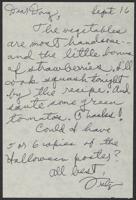 Dear Doug,
Sept 16
The vegetables
are most handsome--
and the little bonus
of strawberries. I'll
cook squash tonight
by the recipe. And
saute some green
tomatoes. Thanks!
Could I have
5 or 6 copies of the
Halloween poster?
all best,